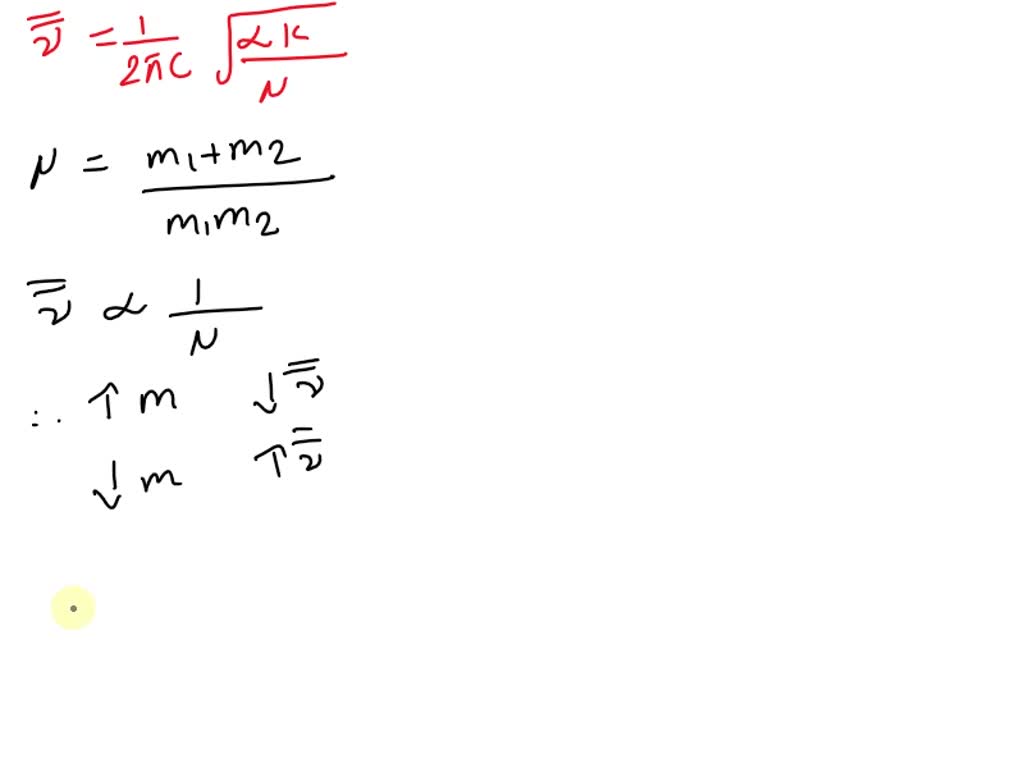 ν̿ = 1/2πc √αK/μ
μ = m1+m2/m1m2
ν̿ ∝ 1/μ
∴ ↑ m ↓ ν̿
↓ m ↑ ν̿